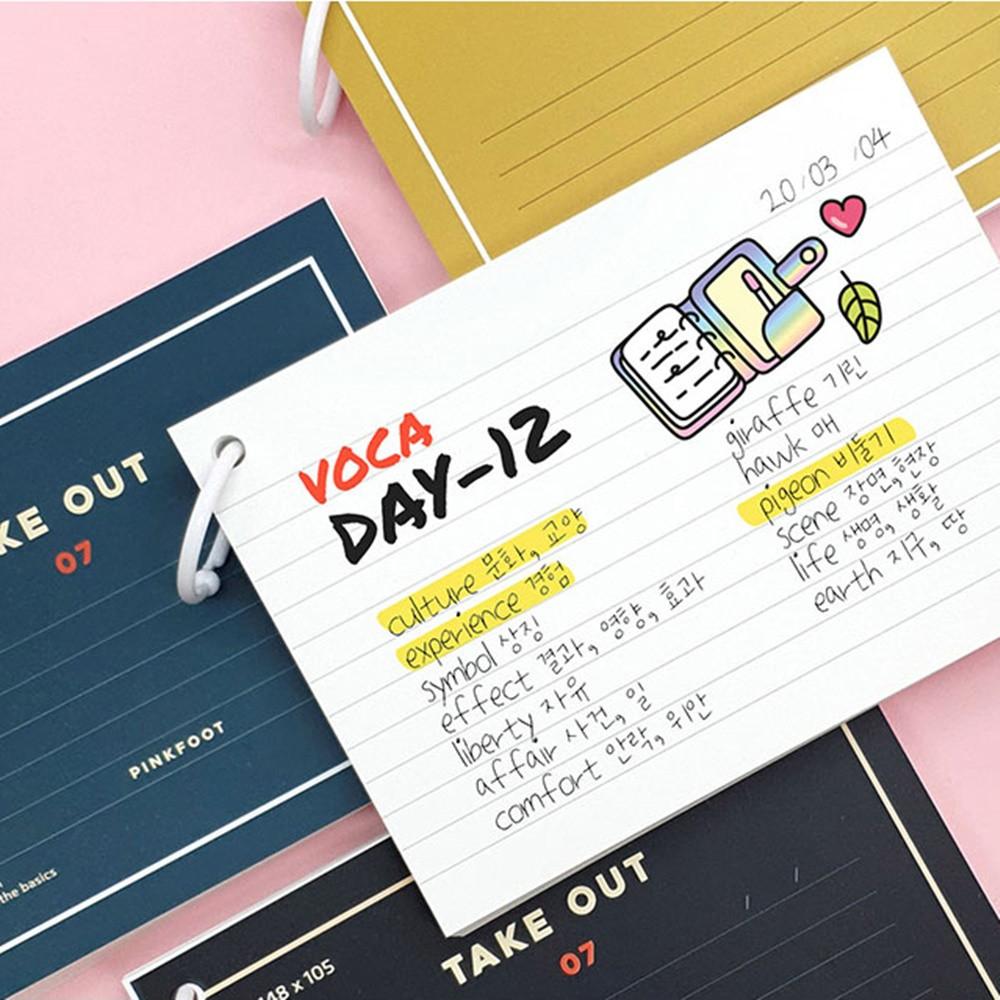 20/03/04
VOCA
DAY-12
culture 문화, 교양
experience 경험
symbol 상징
effect 결과, 영향, 효과
liberty 자유
affair 사건, 일
comfort 안락, 위안
giraffe 기린
hawk 매
pigeon 비둘기
scene 장면, 현장
life 생명, 생활
earth 지구, 땅
KE OUT
07
PINKFOOT
the basics
TAKE OUT
07
148 x 105